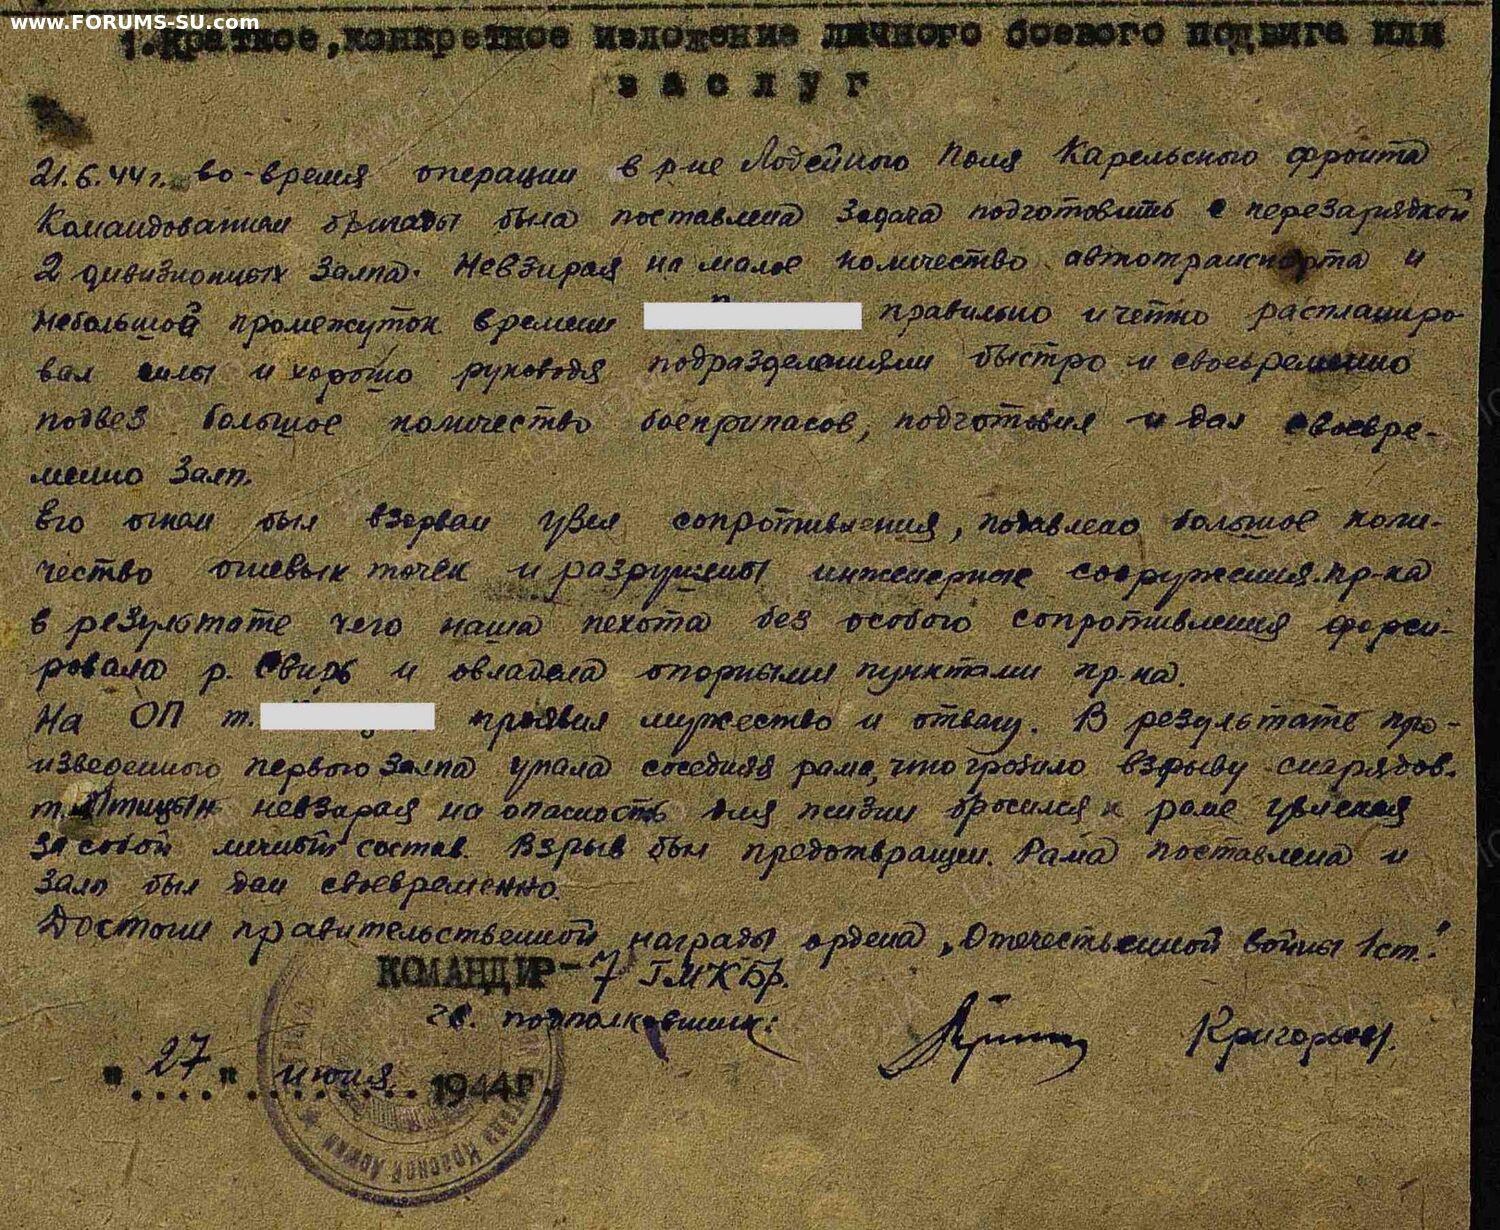 www.FORUMS-SU.com
1. Краткое, конкретное изложение личного боевого подвига или
заслуг
21.6.44г. во-время операции в р-не Лодейного Поля Карельского фронта
Командованием бригады была поставлена задача подготовить с перезарядкой
2 дивизионных залпа. Невзирая на малое количество автотранспорта и
небольшой промежуток времени правильно и четко распланиро-
вал силы и хорошо руководя подразделениями быстро и своевременно
подвез большое количество боеприпасов, подготовил и дал своевре-
менно залп.
Его огнем был взорван узел сопротивления, подавлено большое коли-
чество огневых точек и разрушены инженерные сооружения пр-ка
в результате чего наша пехота без особого сопротивления форси-
ровала р. Свирь и овладела опорными пунктами пр-ка.
На ОП т. проявил мужество и отвагу. В результате про-
изведенного первого залпа упала соседняя рама, что грозило взрыву снарядов.
т. Птицын невзирая на опасность для жизни бросился к раме увлекая
за собой личный состав. Взрыв был предотвращен. Рама поставлена и
залп был дан своевременно.
Достоин правительственной награды ордена „Отечественной войны 1 ст."
КОМАНДИР - 7 ГМКБр.
гв. подполковник: Григорьев.
"27" июня 1944г.
Красной Армии